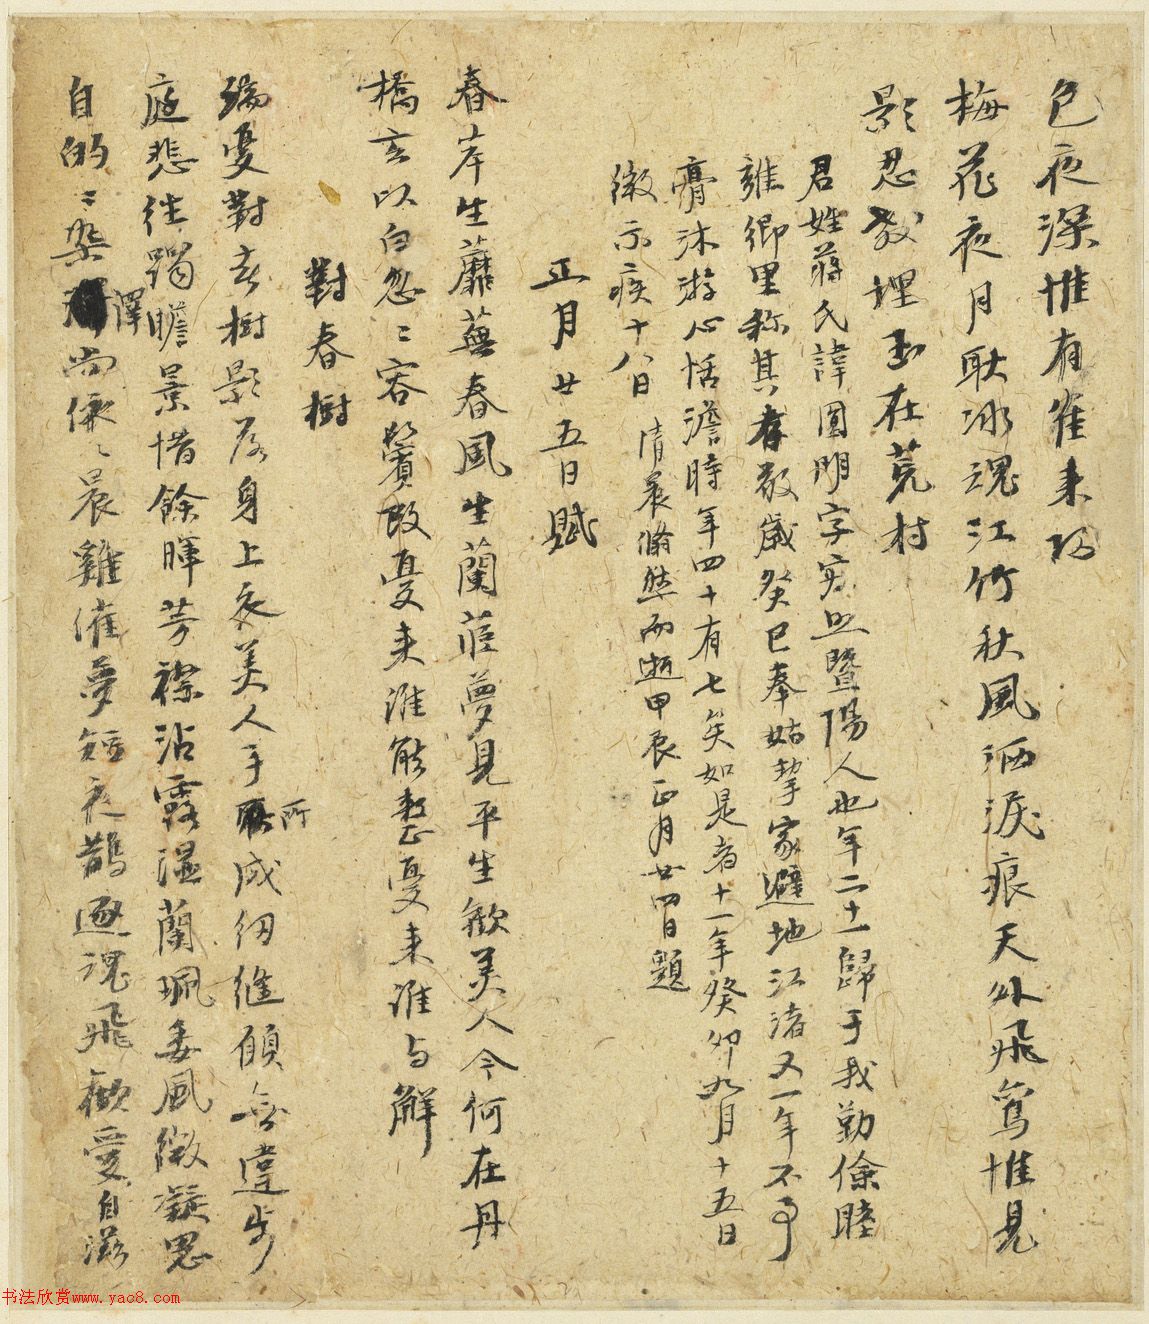 色夜深惟有雀来過
梅花夜月耿冰魂江竹秋風洒淚痕天外飛鸞惟見
影忍教埋玉在荒村
君姓蔣氏諱圓明字寂照暨陽人也年二十一歸于我勤儉睦
雍鄉里称其孝敬歲癸巳奉姑挈家避地江渚又一年不事
膏沐游心恬澹時年四十有七矣如是者十一年癸卯九月十五日
微示疾十八日清晨翛然而逝甲辰正月廿四日題
正月廿五日賦
春岸生蘼蕪春風生蘭茝夢見平生歡美人今何在丹
橋玄以白怱〻容鬢改憂来誰能整憂来誰与解
對春樹
端憂對春樹影落身上衣美人手所成纫維傾無違步
庭悲往躅瞻景惜餘暉芳襟沾露濕蘭珮委風微凝思
自的〻染澤尚依〻晨雞催夢短夜鵲逐魂飛歡愛自滋
书法欣赏www.yac8.com